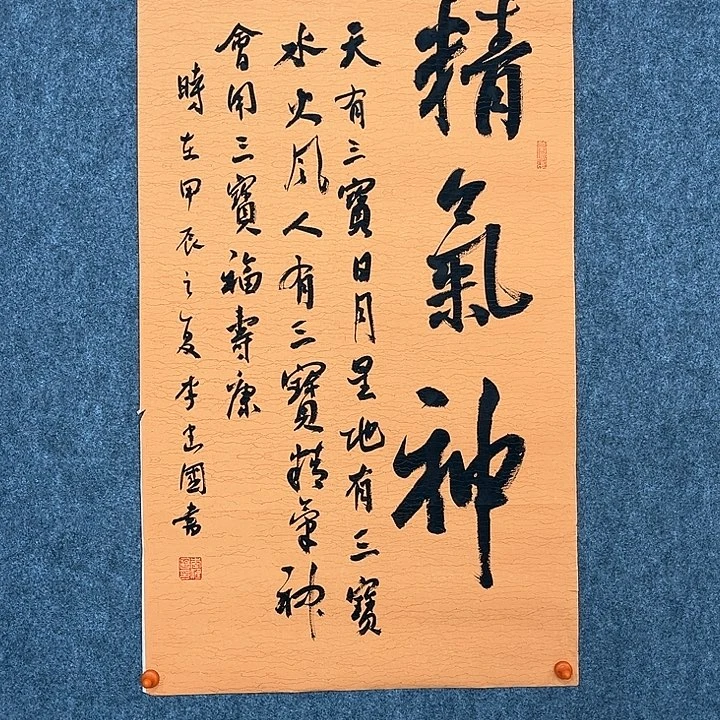 精氣神
天有三寶日月星地有三寶
水火風人有三寶精氣神
會用三寶福壽康
時在甲辰之夏李志國書